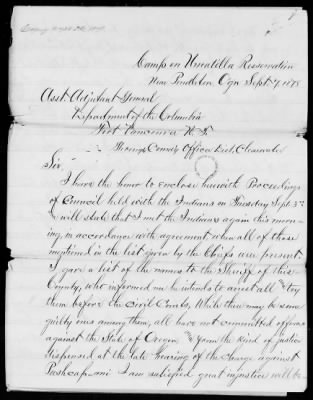 Camp on Umatilla Reservation
Near Pendleton Ogn Sept 7, 1878
Asst. Adjutant General
Department of the Columbia
Fort Vancouver W. T.
Through Comdg Officer Dist. Clearwater
Sir
I have the honor to enclose herewith Proceedings
of Council held with the Indians on Tuesday Sept. 3rd
will state that I met the Indians again this morn-
ing, in accordance with agreement when all of those
mentioned in the list given by the Chiefs were present.
I gave a list of the names to the Sheriff of this
County, who informed me he intends to arrest all & try
them before the Civil Courts, While there may be some
guilty ones among them, all have not committed offences
against the State of Oregon, & from the kind of justice
dispensed at the late hearing of the charge against
I am satisfied great injustice will be